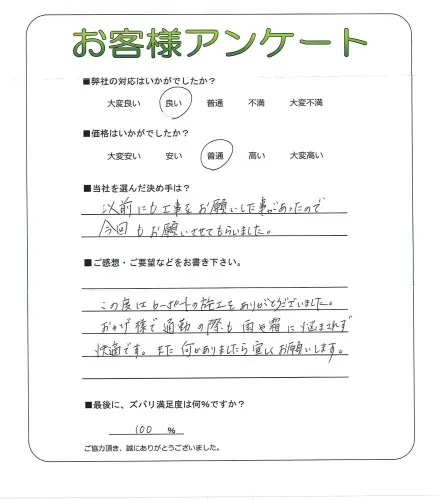 お客様アンケート
■弊社の対応はいかがでしたか?
大変良い 良い 普通 不満 大変不満
■価格はいかがでしたか?
大変安い 安い 普通 高い 大変高い
■当社を選んだ決め手は?
以前にも工事をお願いした事があったので
今回もお願いさせてもらいました。
■ご感想・ご要望などをお書き下さい。
この度はカーポートの施工をありがとうございました。
おかげ様で通勤の際も雨や霜に悩まされず
快適です。また何かありましたら宜しくお願いします。
■最後に、ズバリ満足度は何%ですか?
100 %
ご協力頂き、誠にありがとうございました。